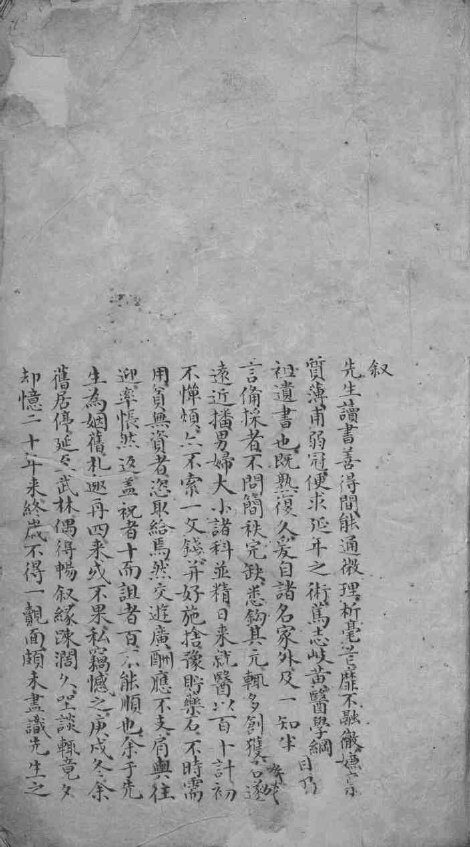 叙
先生讀書善得間能通微理析毫芒靡不融徹嫌家
質薄甫弱冠便求延年之術篤志岐黃醫學綱目乃
祖遺書也既熟復久爰自諸名家外及一知半
言備採者不問簡秩完缺悉鈎其元輒多創獲名遂
遠近播男婦大小諸科並精日來就醫以百十計初
不憚煩亦不索一文錢并好施捨豫貯藥石不時需
用貧無資者恣取給焉然交遊廣酬應不支肩輿往
迎率悵然返蓋祝者十而詛者百不能順也余于先
生為姻舊札邀再四來或不果私竊憾之庚戌冬余
舊居停延至武林偶得暢叙緣踈濶久坐談輒竟夕
却憶二十年來終歲不得一覿面頗未盡識先生之